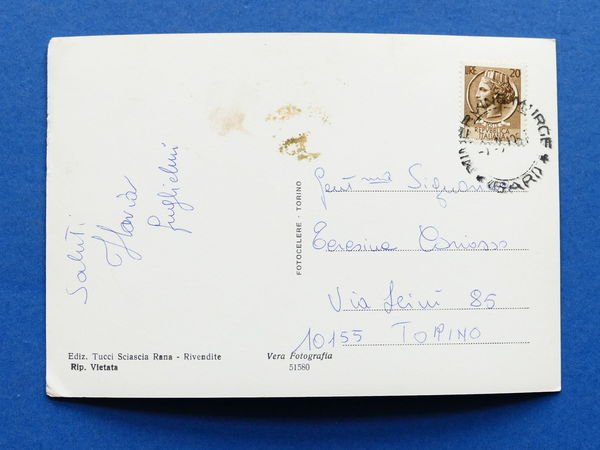 Saluti
Flavia
Guglielmi
Ediz. Tucci Sciascia Rana - Rivendite
Rip. Vietata
Vera Fotografia
51580
FOTOCELERE - TORINO
LIRE 20
MINERVINO MURGE
(BARI)
Gent.ma Signora
Teresina Cariasso
Via Leini 85
10155 TORINO